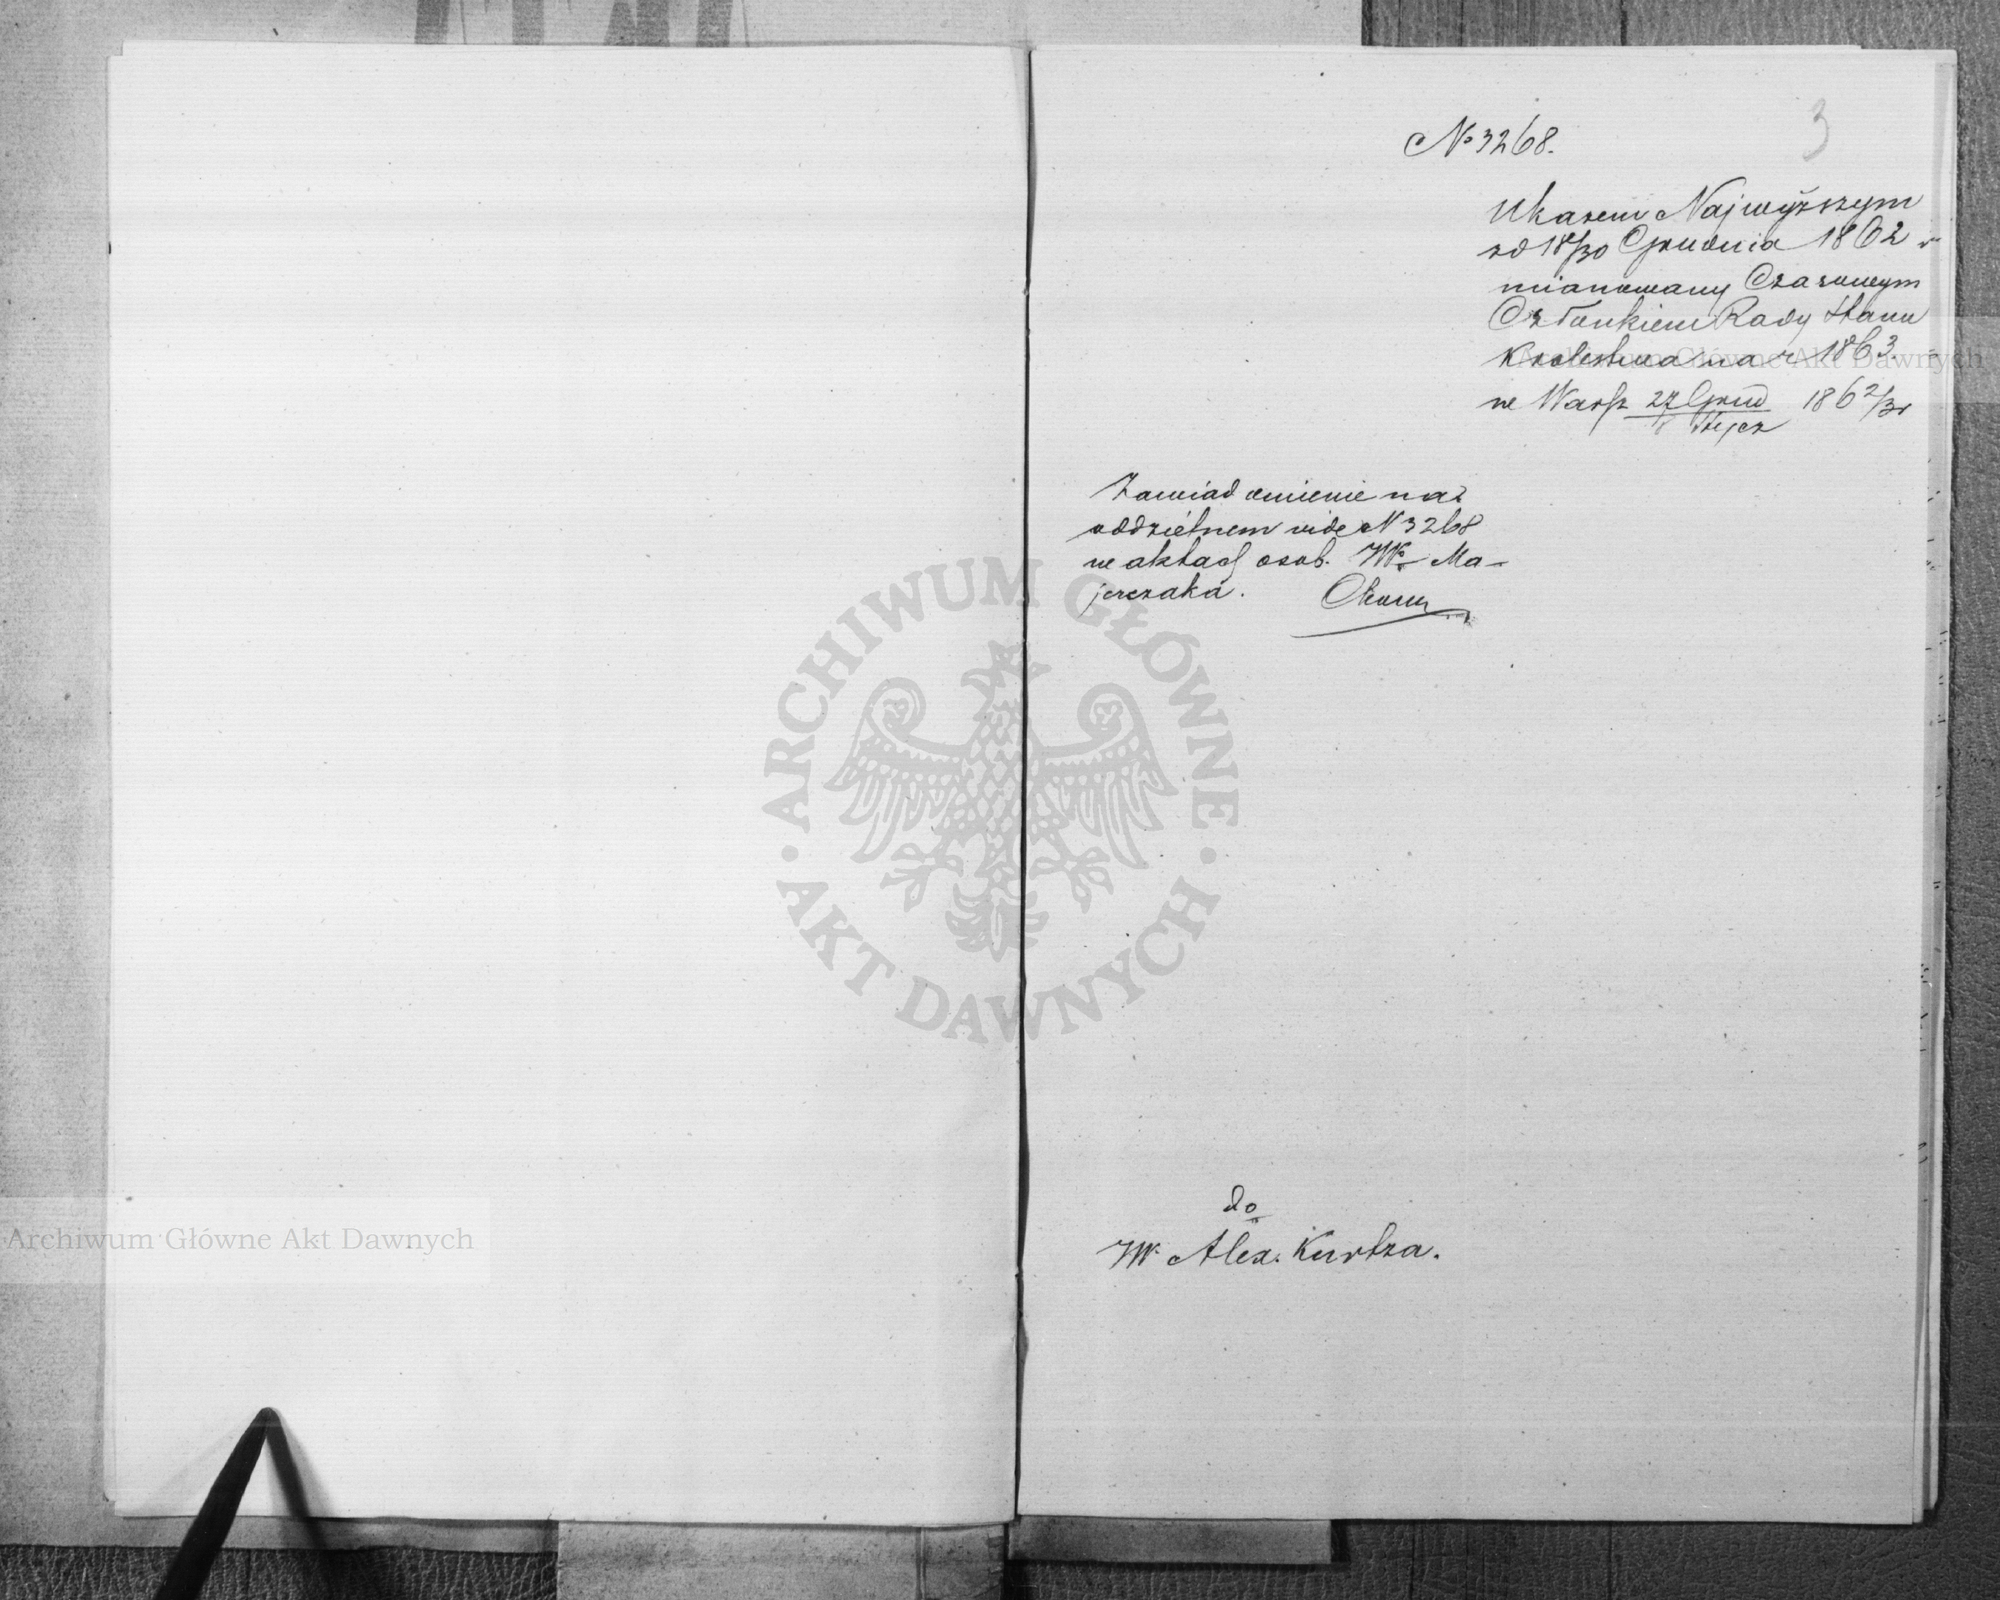 3
№ 3268.
Ukazem Najwyższym
od 18/30 Grudnia 1862 r
mianowany Czasowym
Członkiem Rady Stanu
Królestwa na r 1863.
we Warsz 27 Grud 1862/3r
8 Stycz
Zawiadomienie na
oddzielnem vide N 3268
w aktach osob. JW. Ma-
jerczaka.
do
JW. Alex. Kurtza.
ARCHIWUM GŁÓWNE
AKT DAWNYCH
Archiwum Główne Akt Dawnych
Archiwum Główne Akt Dawnych